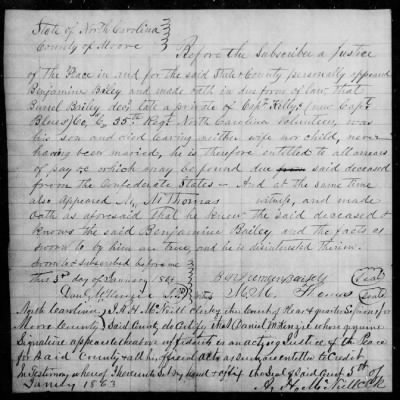 State of North Carolina
County of Moore
Before the Subscriber a Justice
of the Peace in and for the said State & County personaly appeared
Benjamine Briley and made oath in due form of law, that
Burrel Briley decd. late a private of Capt. Kellys (now Capt.
Blues) Co, C, 35th Regt North Carolina volunteers, was
his son and died leaving neither wife nor child, never
having been maried, he is therefore entitled to all arrears
of pay &c which may be found due from said deceased
from the Confederate States - And at the same time
also appeared M Thomas witness, and made
oath as aforesaid that he knew the said deceased &
knows the said Benjamine Briley and the facts as
sworn to by him are true, and he is disinterested therein.
Sworn to & subscribed before me
this 3d day of January 1863
Danl McKenzie
(Seal)
(Seal)
North Carolina, I A. H. McNeill clerk of the Court of Pleas & quarter Sessions for
Moore County Said County do Certify that Daniel McKenzie whose genuine
Signature appears to the above affidavit is an acting Justice of the Peace
for Said County & all his official acts as such are entitled to Credit.
In Testimony whereof I hereunto Set my hand & affix the Seal of Said Court 3rd of
January 1863
A. H. McNeill Clk